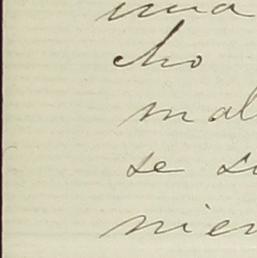 una
cho
mal
se su
nien